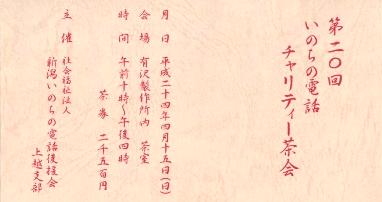 第二〇回
いのちの電話
チャリティー茶会
月日 平成二十四年四月十五日(日)
会場 有沢製作所内 茶室
時間 午前十時~午後四時
茶券 二千五百円
主催 社会福祉法人
新潟いのちの電話後援会
上越支部